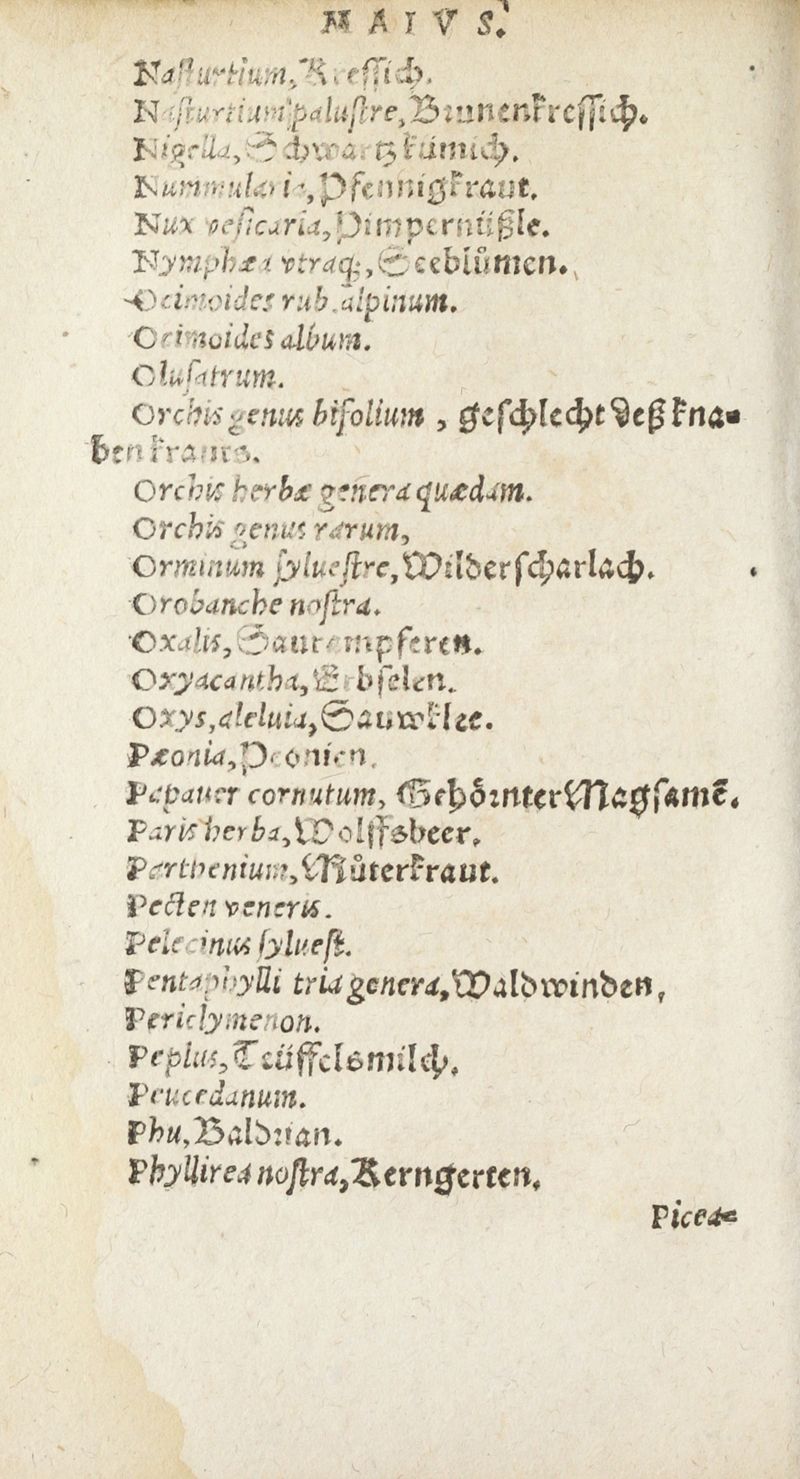 MAIVS.
Naſturtium, Kreſſich.
Naſturtium paluſtre, Brunenkreſſich.
Nigella, Schwartz kümich.
Nummularia, Pfennigkraut.
Nux veſicaria, Pimpernüßle.
Nymphæa vtraq;, Seeblůmen.
Ocimoides rub. alpinum.
Ocimoides album.
Oluſatrum.
Orchis genus bifolium , geſchlecht deß kna-
benkrauts.
Orchis herbæ genera quædam.
Orchis genus rarum,
Orminum ſylueſtre, Wilderſcharlach.
Orobanche noſtra.
Oxalis, Saurampferen.
Oxyacantha, Erbſelen.
Oxys, aleluia, Sauwklee.
Pæonia, Peonien.
Papauer cornutum, GehörnterMagſamē.
Paris herba, Wolffsbeer.
Parthenium, Můterkraut.
Pecten veneris.
Pelecinus ſylueſt.
Pentaphylli tria genera, Waldwinden,
Periclymenon.
Peplus, Teüffelsmilch.
Peucedanum.
Phu, Baldrian.
Phyllirea noſtra, Kerngerten.
Picea